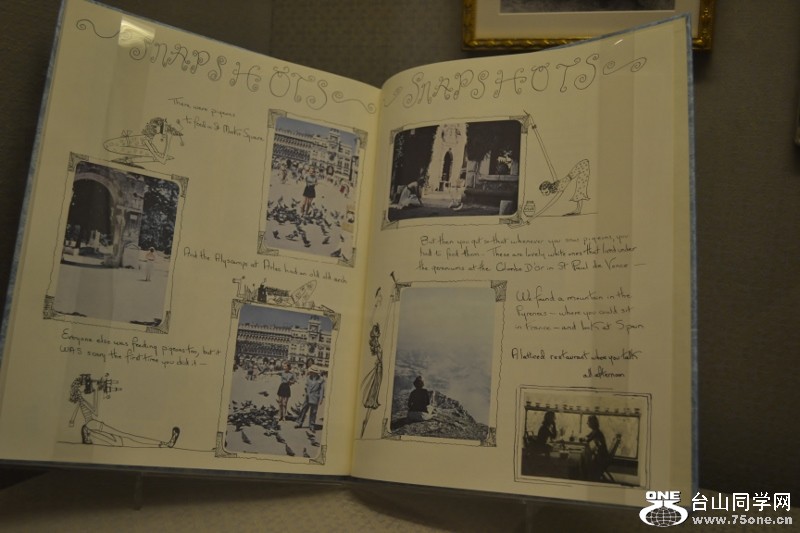 SNAPSHOTS
There were pigeons
to feed in St Mark's Square
And the Alyscamps at Arles had an old old arch
Everyone else was feeding pigeons too, but it
WAS crazy the first time you did it —
SNAPSHOTS
But then you got so that whenever you saw pigeons, you
had to feed them — These are lovely white ones that land under
the geraniums at the Colombe D'Or in St Paul de Vence —
We found a mountain in the
Pyrenees — where you could sit
in France — and look at Spain
A latticed restaurant where you talk
all afternoon
ONE
台山同学网
www.75one.cn